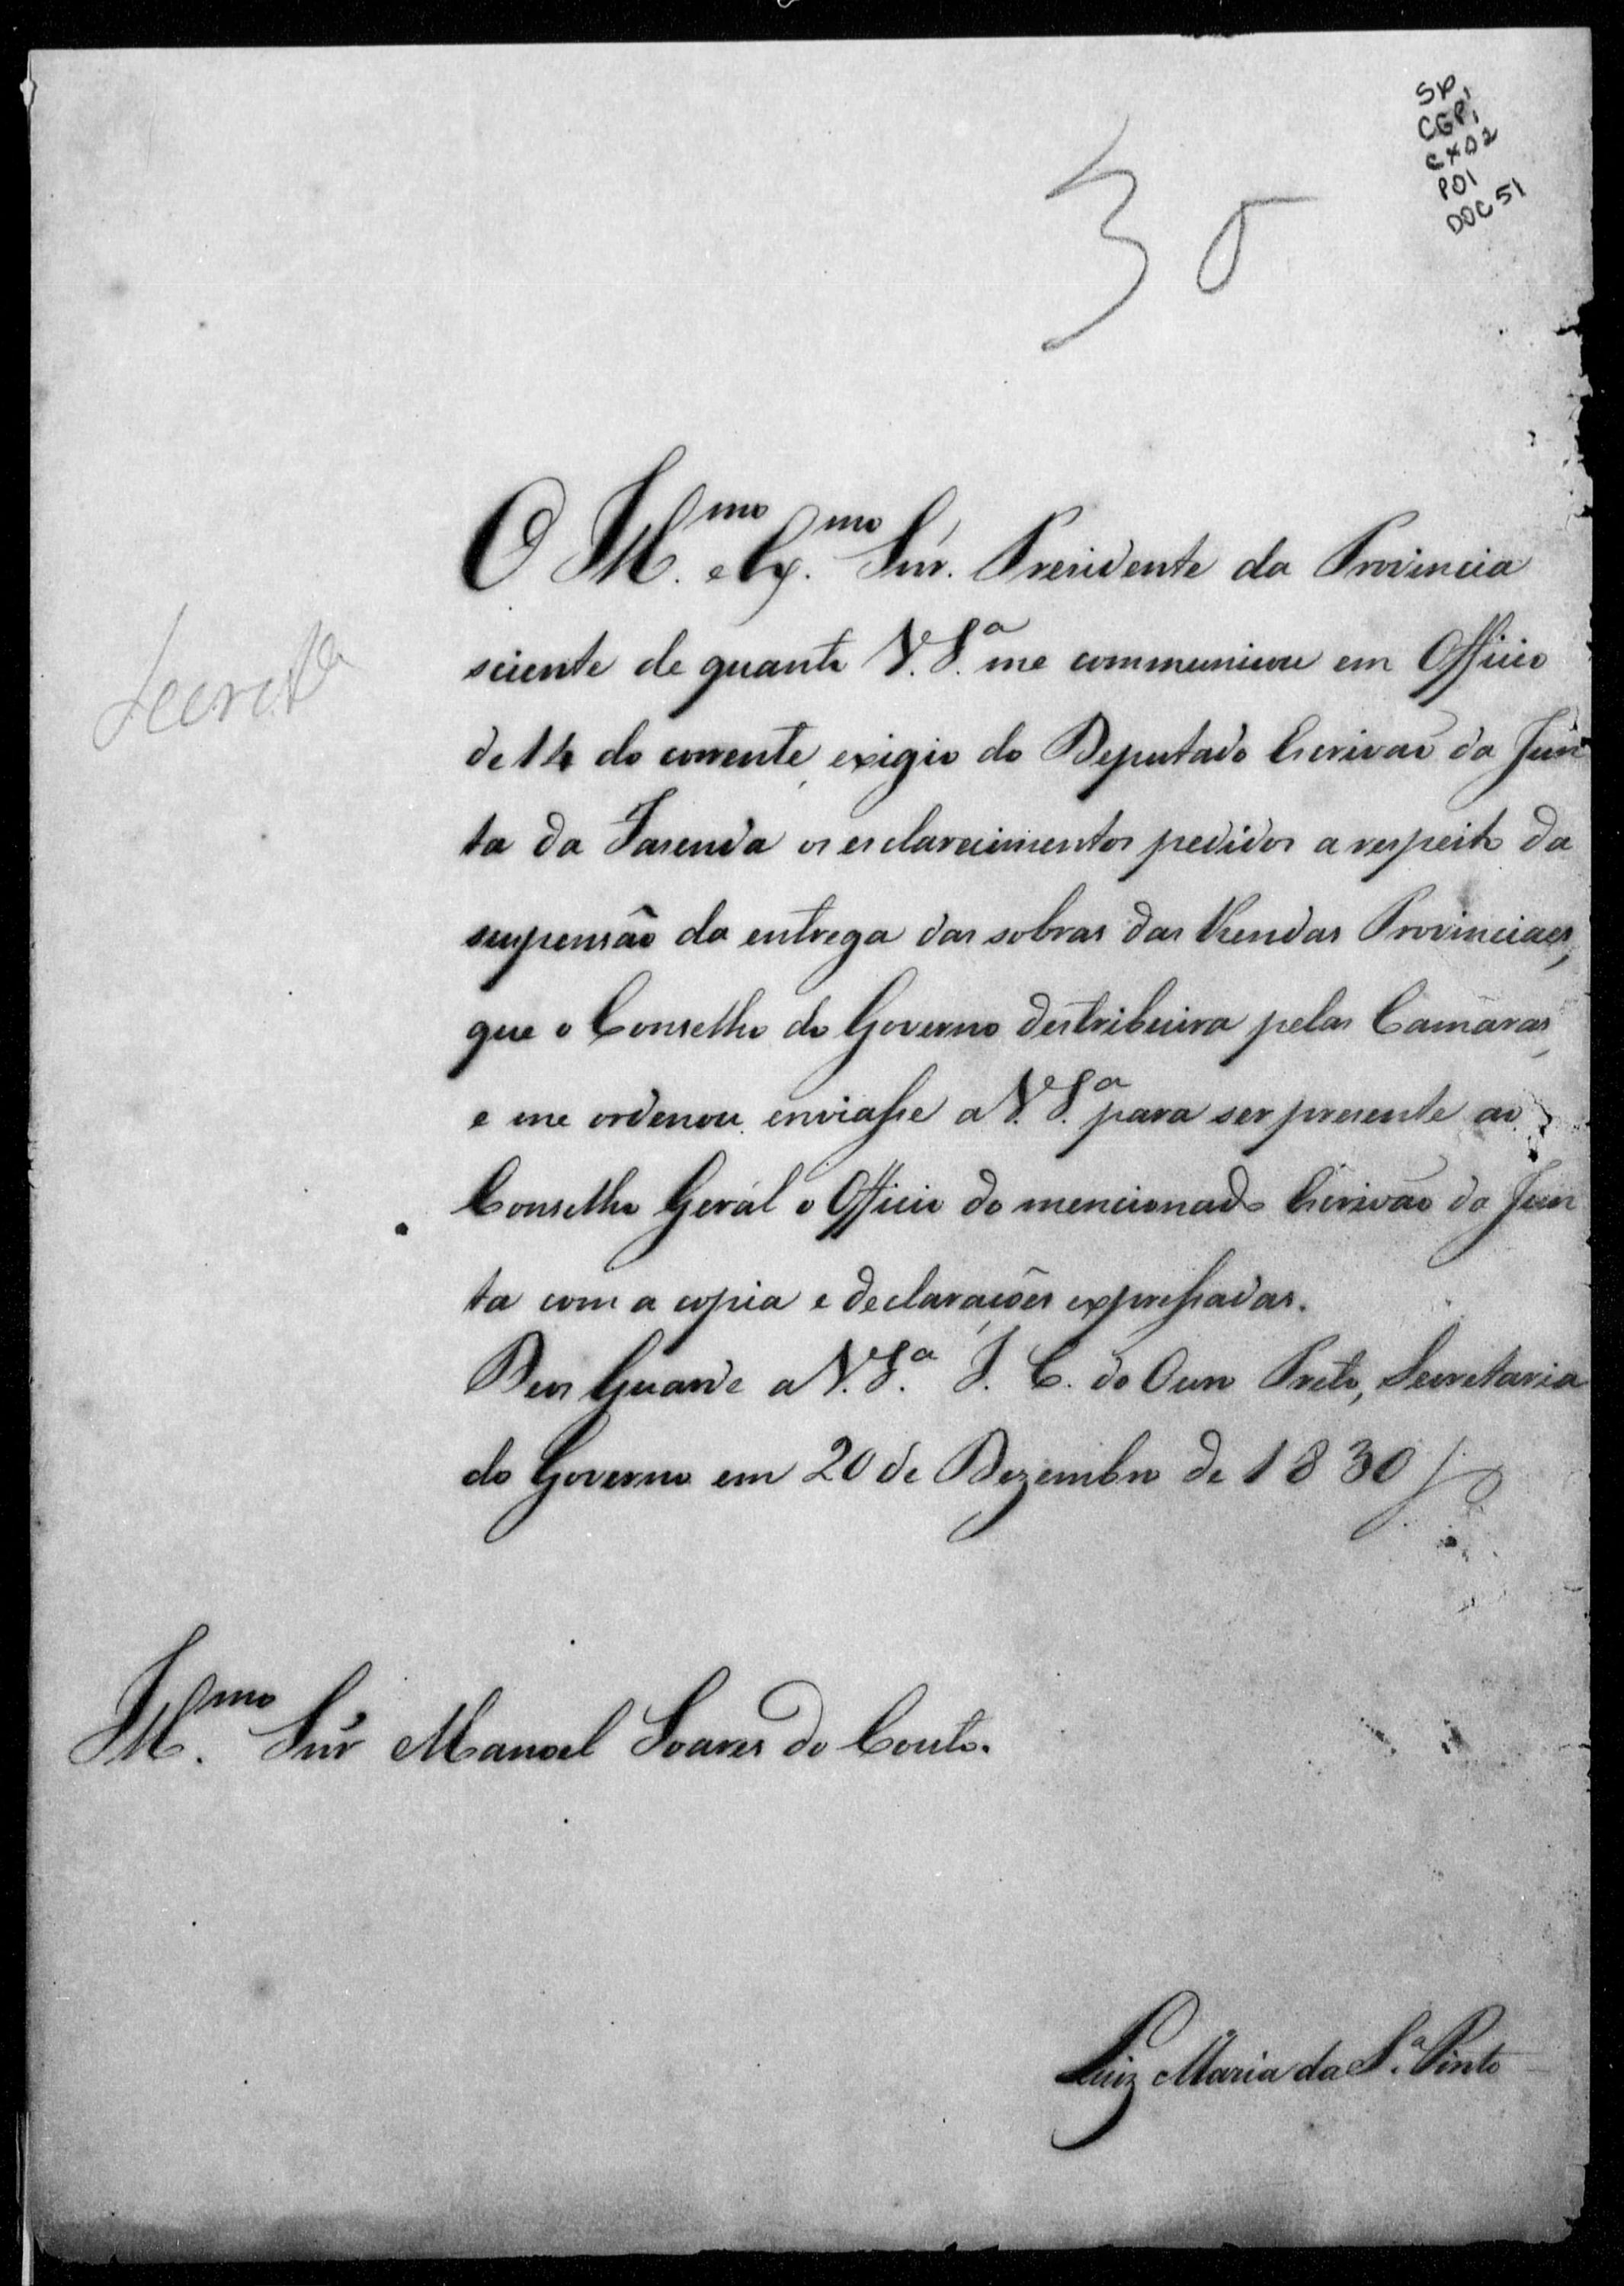 SP,
CGP,
CX02
P01
DOC 51
30
O Ill.mo e Ex.mo Snr. Presidente da Provincia
sciente de quanto V. S.a me communicou em Officio
de 14 do corrente, exigio do Deputado Escrivaõ da Jun
ta da Fasenda os esclarecimentos pedidos a respeito da
suspensão da entrega das sobras das Rendas Provinciaes,
que o Conselho do Governo destribuira pelas Camaras,
e me ordenou enviasse a V. S.a para ser presente ao
Conselho Geral o Officio do mencionado Escrivaõ da Jun
ta com a copia e declarações expressadas.
Deos Guarde a V. S.a I. C. do Ouro Preto, Secretaria
do Governo em 20 de Dezembro de 1830
Ill.mo Snr Manoel Soares do Couto.
Luiz Maria da S.a Pinto